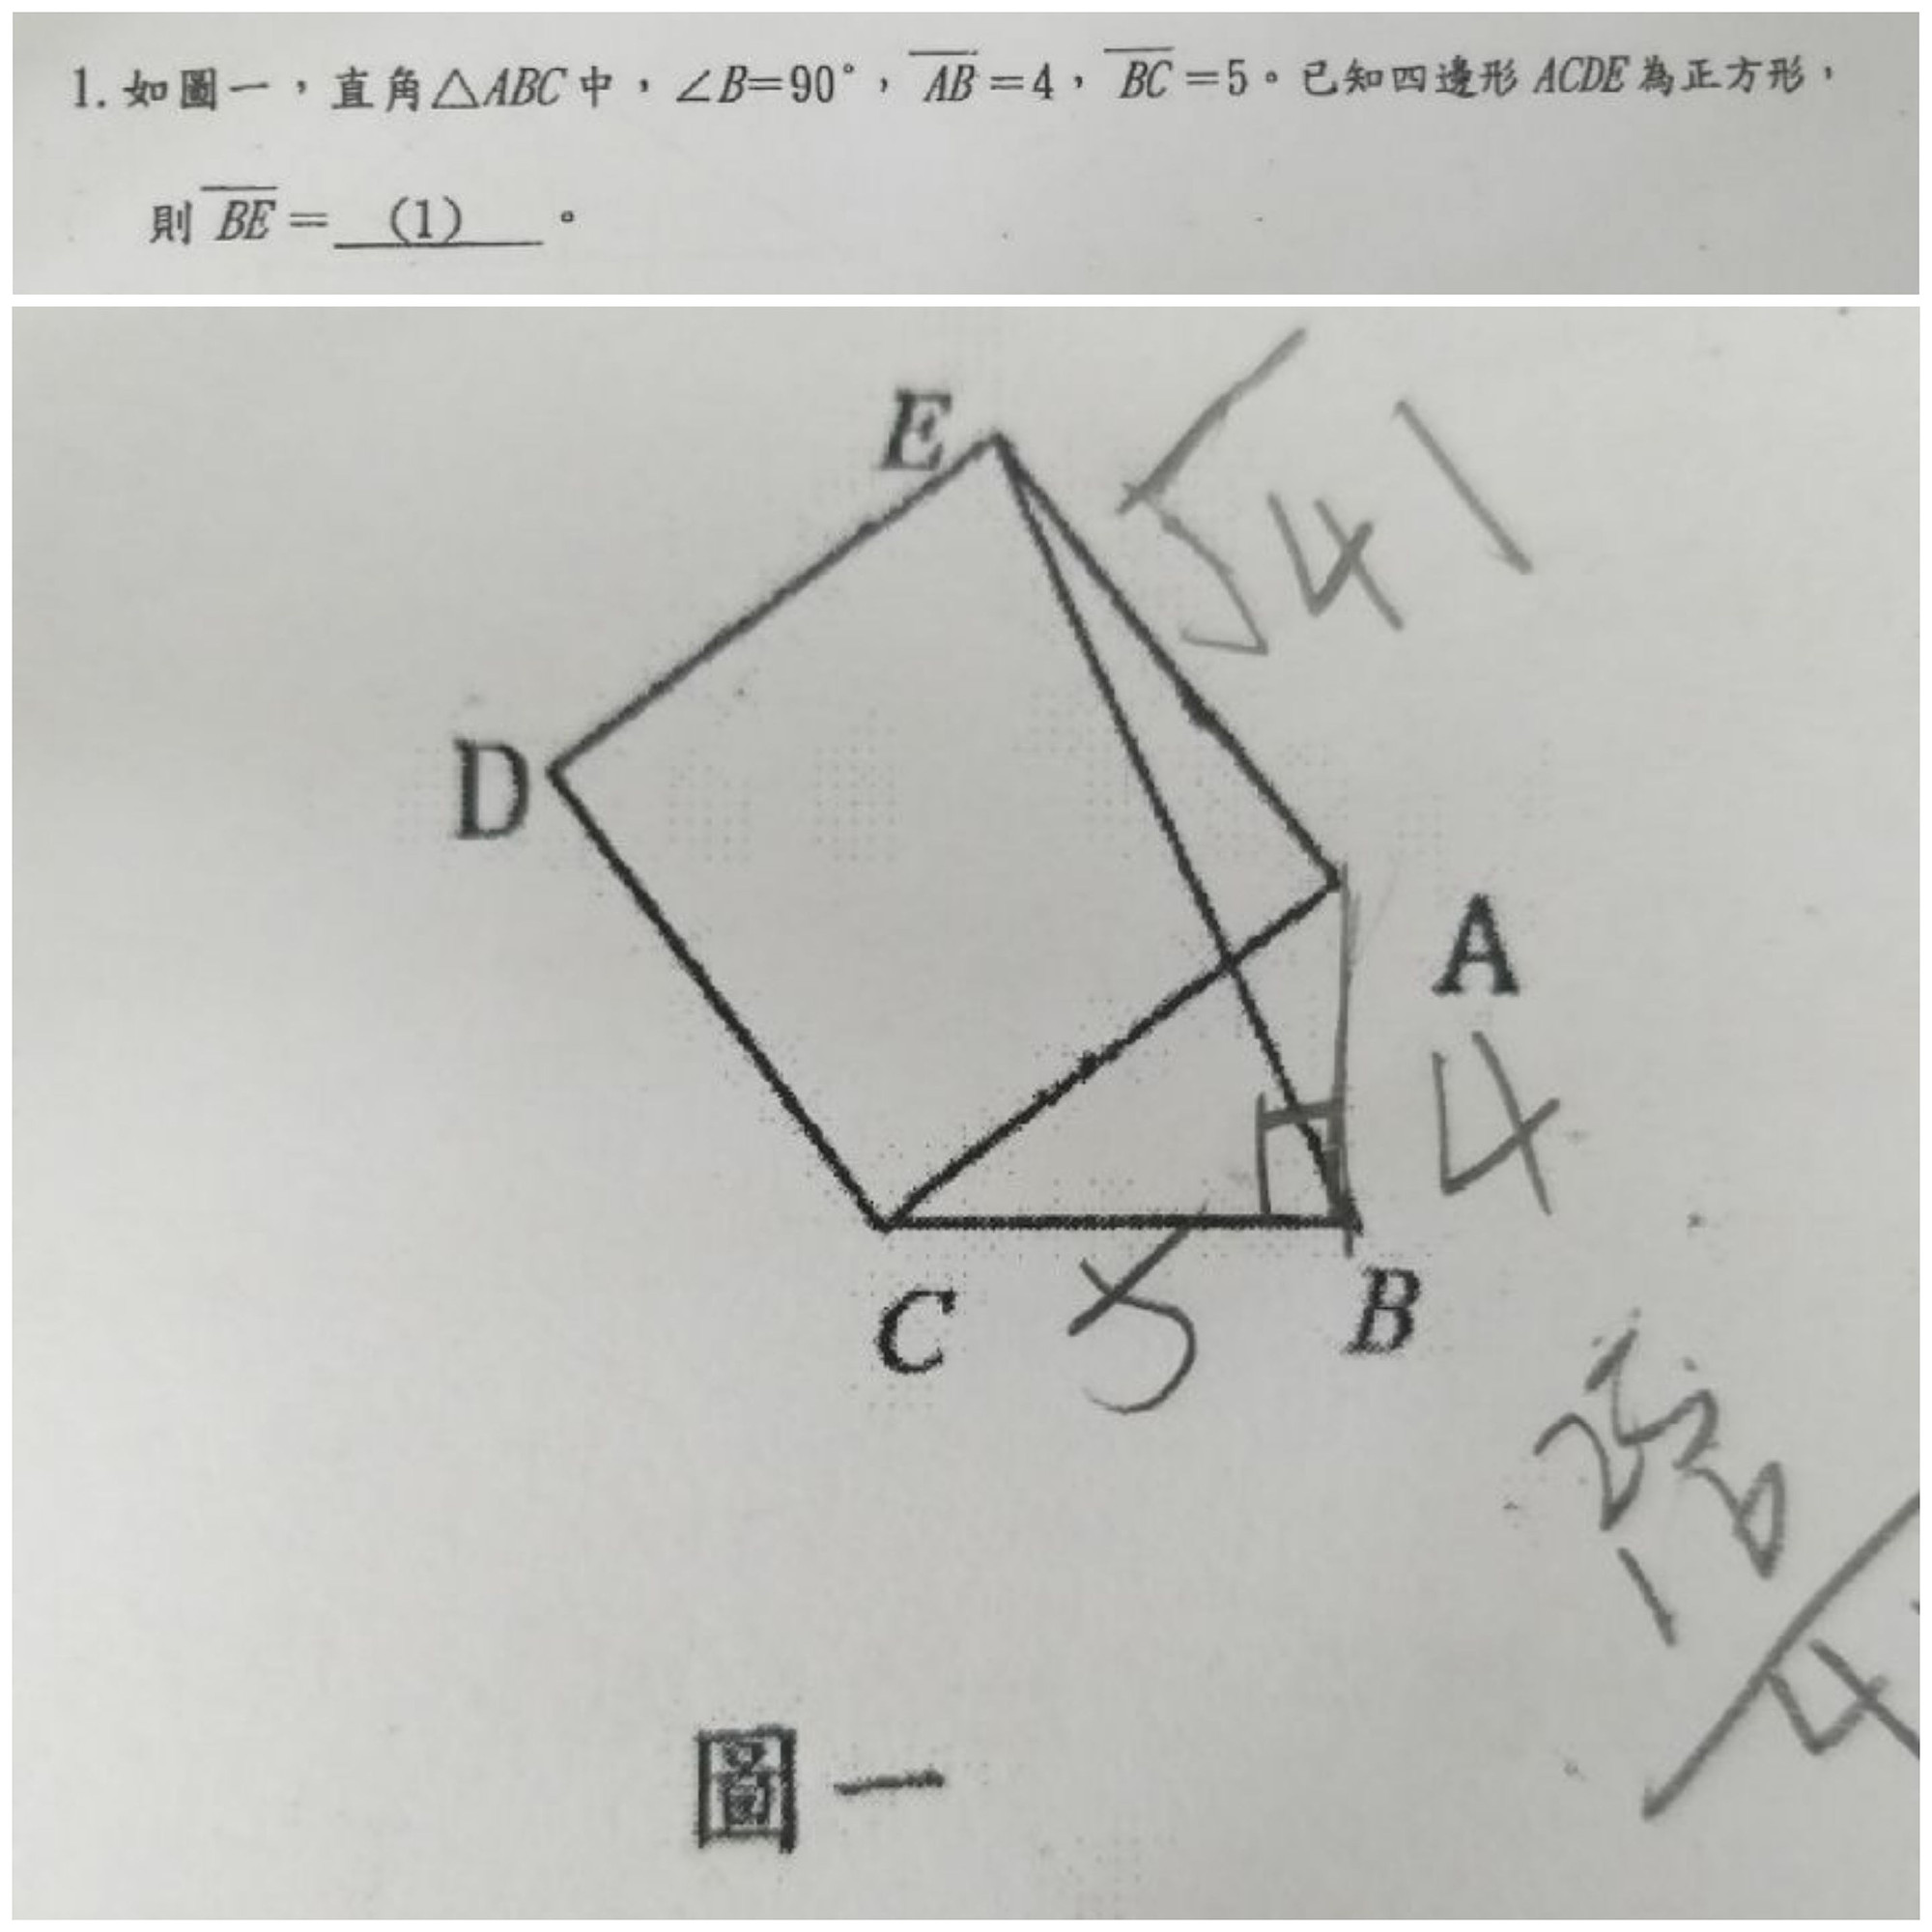 1. 如圖一，直角△ABC中，∠B=90°，AB=4，BC=5。已知四邊形ACDE為正方形，
則BE=(1)。
E
√41
D
A
4
C
5
B
圖一